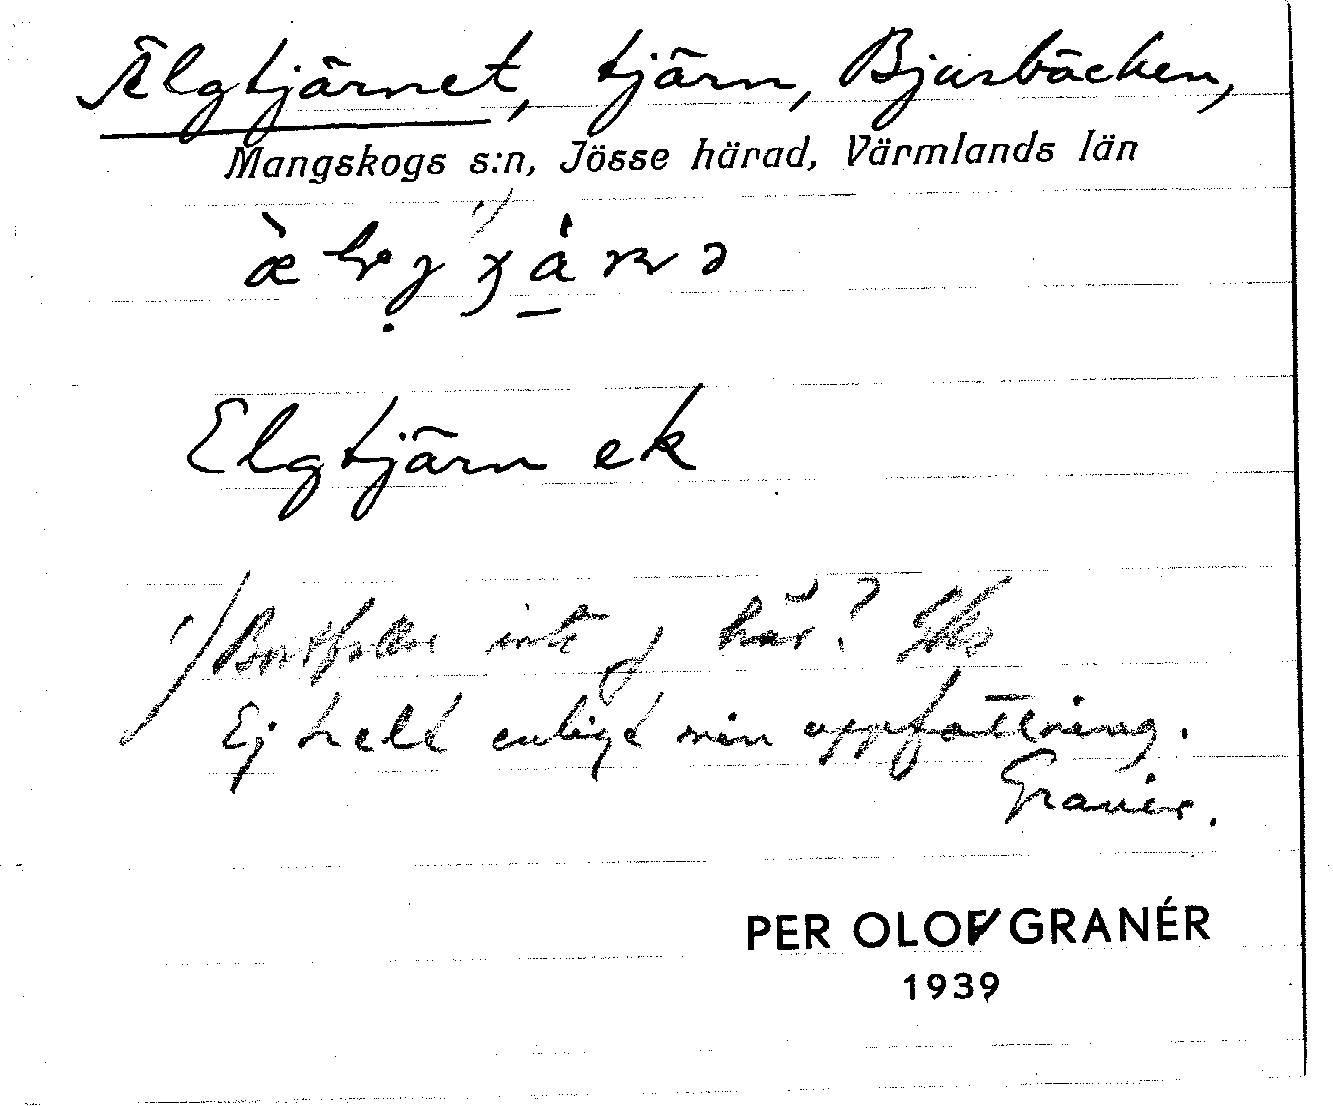 Älgtjärnet, tjärn, Bjusbäcken,
Mangskogs s:n, Jösse härad, Värmlands län
Elgtjärn ek
1) Bortfaller inte j här?
Ej helt enligt min uppfattning.
Granér.
PER OLOF GRANÉR
1939